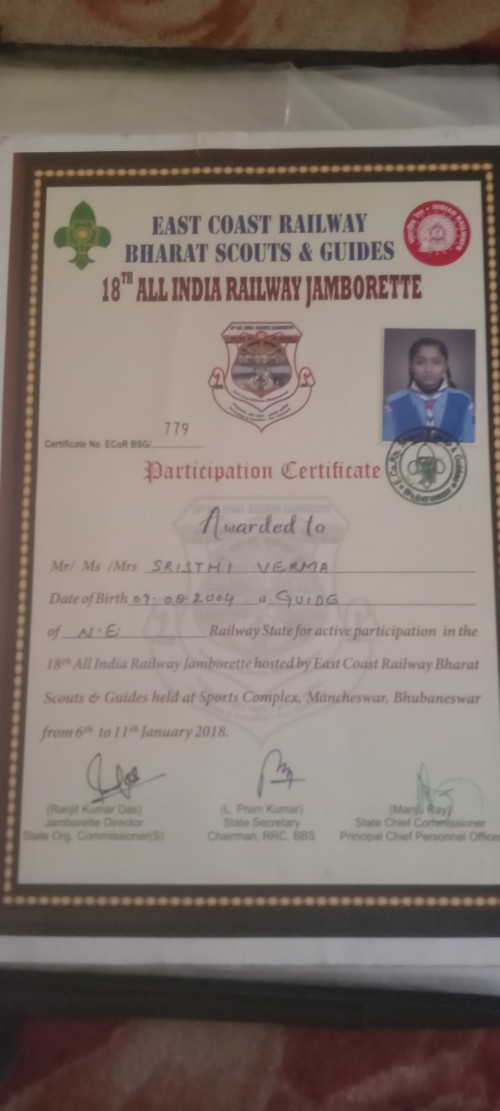 EAST COAST RAILWAY
BHARAT SCOUTS & GUIDES
18TH ALL INDIA RAILWAY JAMBORETTE
INDIAN RAILWAYS
779
Certificate No. ECoR BSG/
Participation Certificate
Awarded to
Mr/ Ms /Mrs SRISTHI VERMA
Date of Birth 07.08.2004 a GUIDE
of N.E. Railway State for active participation in the
18th All India Railway Jamborette hosted by East Coast Railway Bharat
Scouts & Guides held at Sports Complex, Mancheswar, Bhubaneswar
from 6th to 11th January 2018.
(Ranjit Kumar Das) (L. Prem Kumar) (Manju Ray)
Jamborette Director State Secretary State Chief Commissioner
State Org. Commissioner(S) Chairman, RRC, BBS Principal Chief Personnel Officer